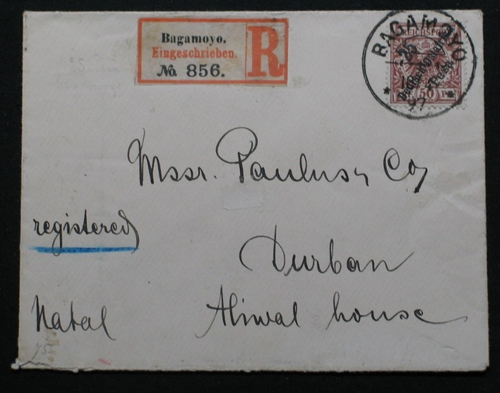 Bagamoyo.
Eingeschrieben.
No 856.
R
BAGAMOYO
97
50
Mssr. Paulus & Co
registered
Durban
Natal
Aliwal house